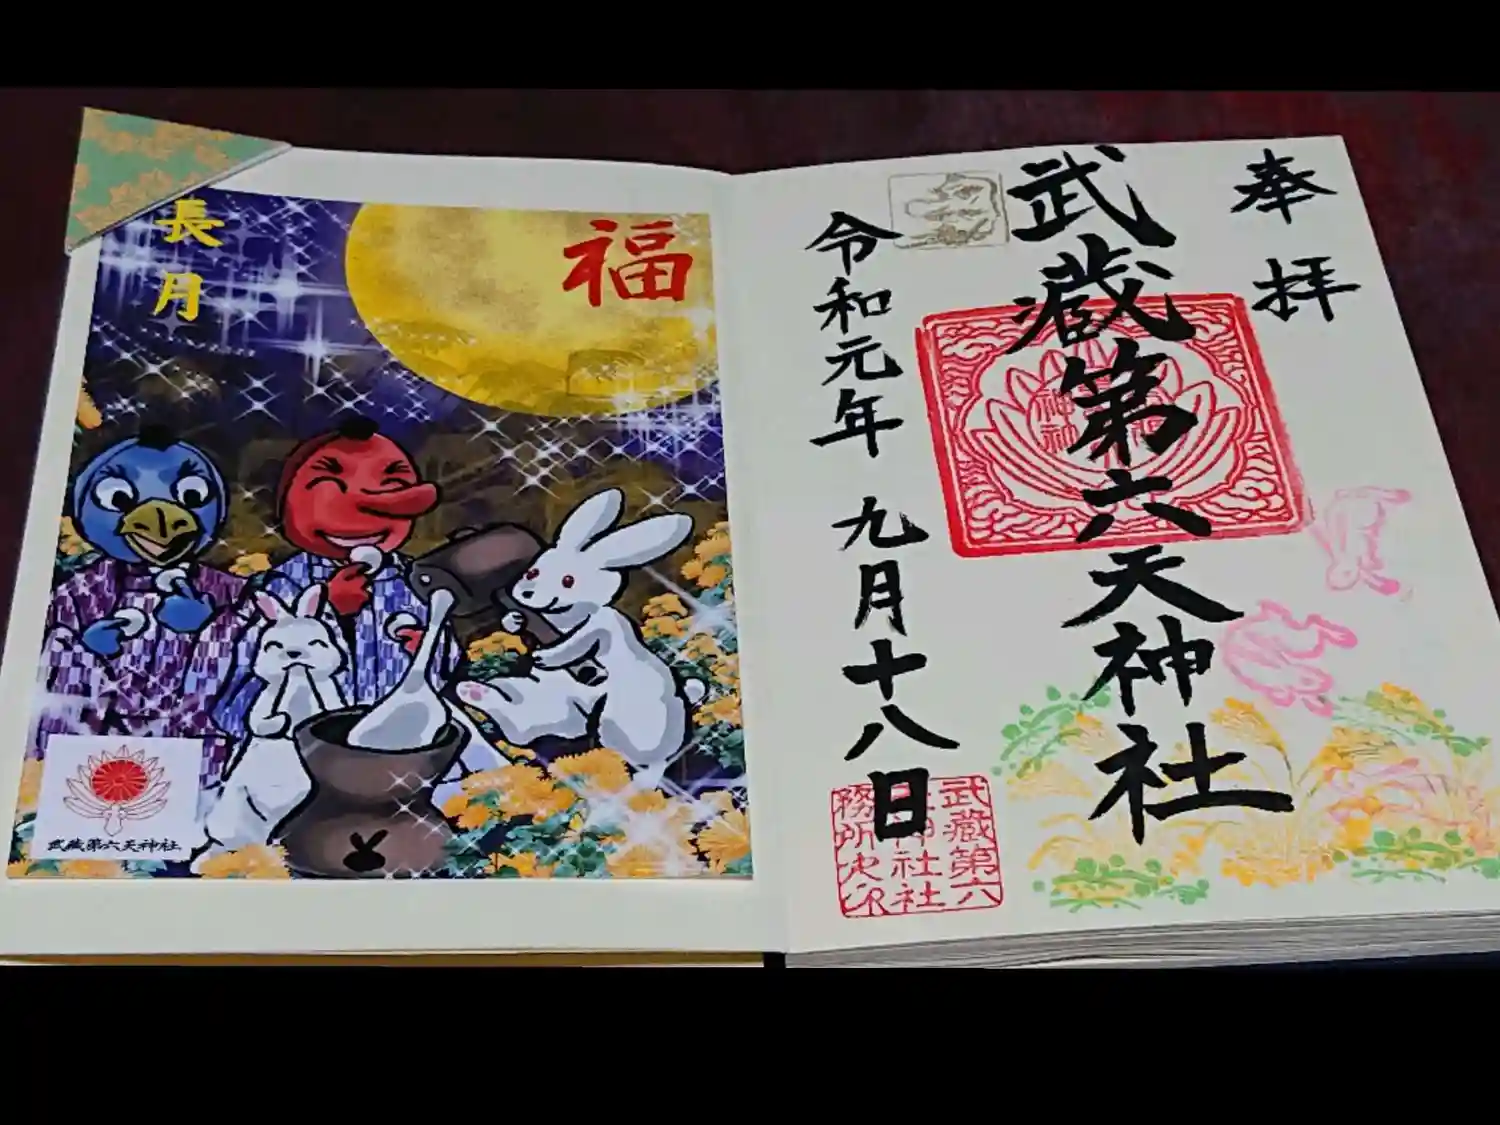 奉拝
武蔵第六天神社
令和元年 九月十八日
武蔵第六
神社社
務所之印
福
長月
武蔵第六天神社